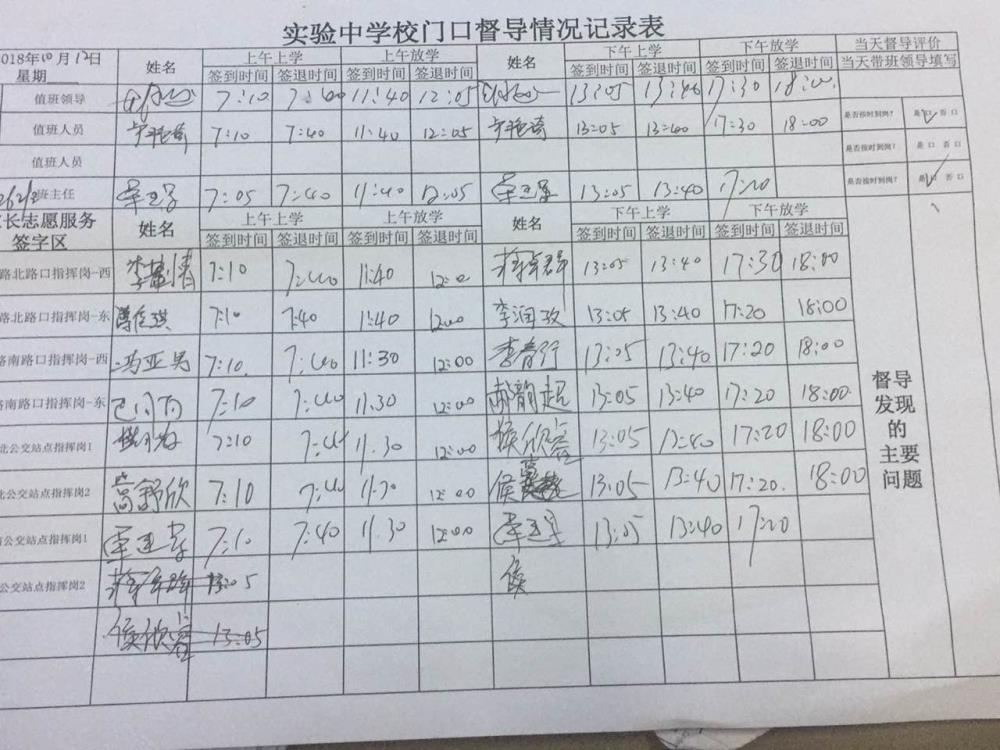 实验中学校门口督导情况记录表
2018年10月12日 姓名 上午上学 上午放学 姓名 下午上学 下午放学 当天督导评价
星期 签到时间 签退时间 签到时间 签退时间 签到时间 签退时间 签到时间 签退时间 当天带班领导填写
值班领导 7:10 11:40 12:05 13:05 13:40 17:30 18:00
值班人员 7:10 7:40 11:40 12:05 13:05 13:40 17:30 18:00 是否按时到岗? 是口 否口
值班人员 是否按时到岗? 是口 否口
班主任 7:05 7:40 11:40 12:05 13:05 13:40 17:20 是否按时到岗? 是口 否口
长志愿服务 姓名 上午上学 上午放学 姓名 下午上学 下午放学
签字区 签到时间 签退时间 签到时间 签退时间 签到时间 签退时间 签到时间 签退时间
路北路口指挥岗-西 7:10 7:40 11:40 12:00 13:05 13:40 17:30 18:00
路北路口指挥岗-东 7:10 7:40 11:40 12:00 李润玫 13:05 13:40 17:20 18:00
路南路口指挥岗-西 冯亚男 7:10 7:40 11:30 12:00 李春行 13:05 13:40 17:20 18:00
路南路口指挥岗-东 7:10 7:40 11:30 12:00 郝韵超 13:05 13:40 17:20 18:00
北公交站点指挥岗1 7:10 7:40 11:30 12:00 侯欣蓉 13:05 13:40 17:20 18:00
北公交站点指挥岗2 高舒欣 7:10 7:40 11:30 12:00 侯 13:05 13:40 17:20 18:00
公交站点指挥岗1 7:10 7:40 11:30 12:00 13:05 13:40 17:20
公交站点指挥岗2 13:05 侯
侯欣蓉 13:05
督导
发现
的
主要
问题